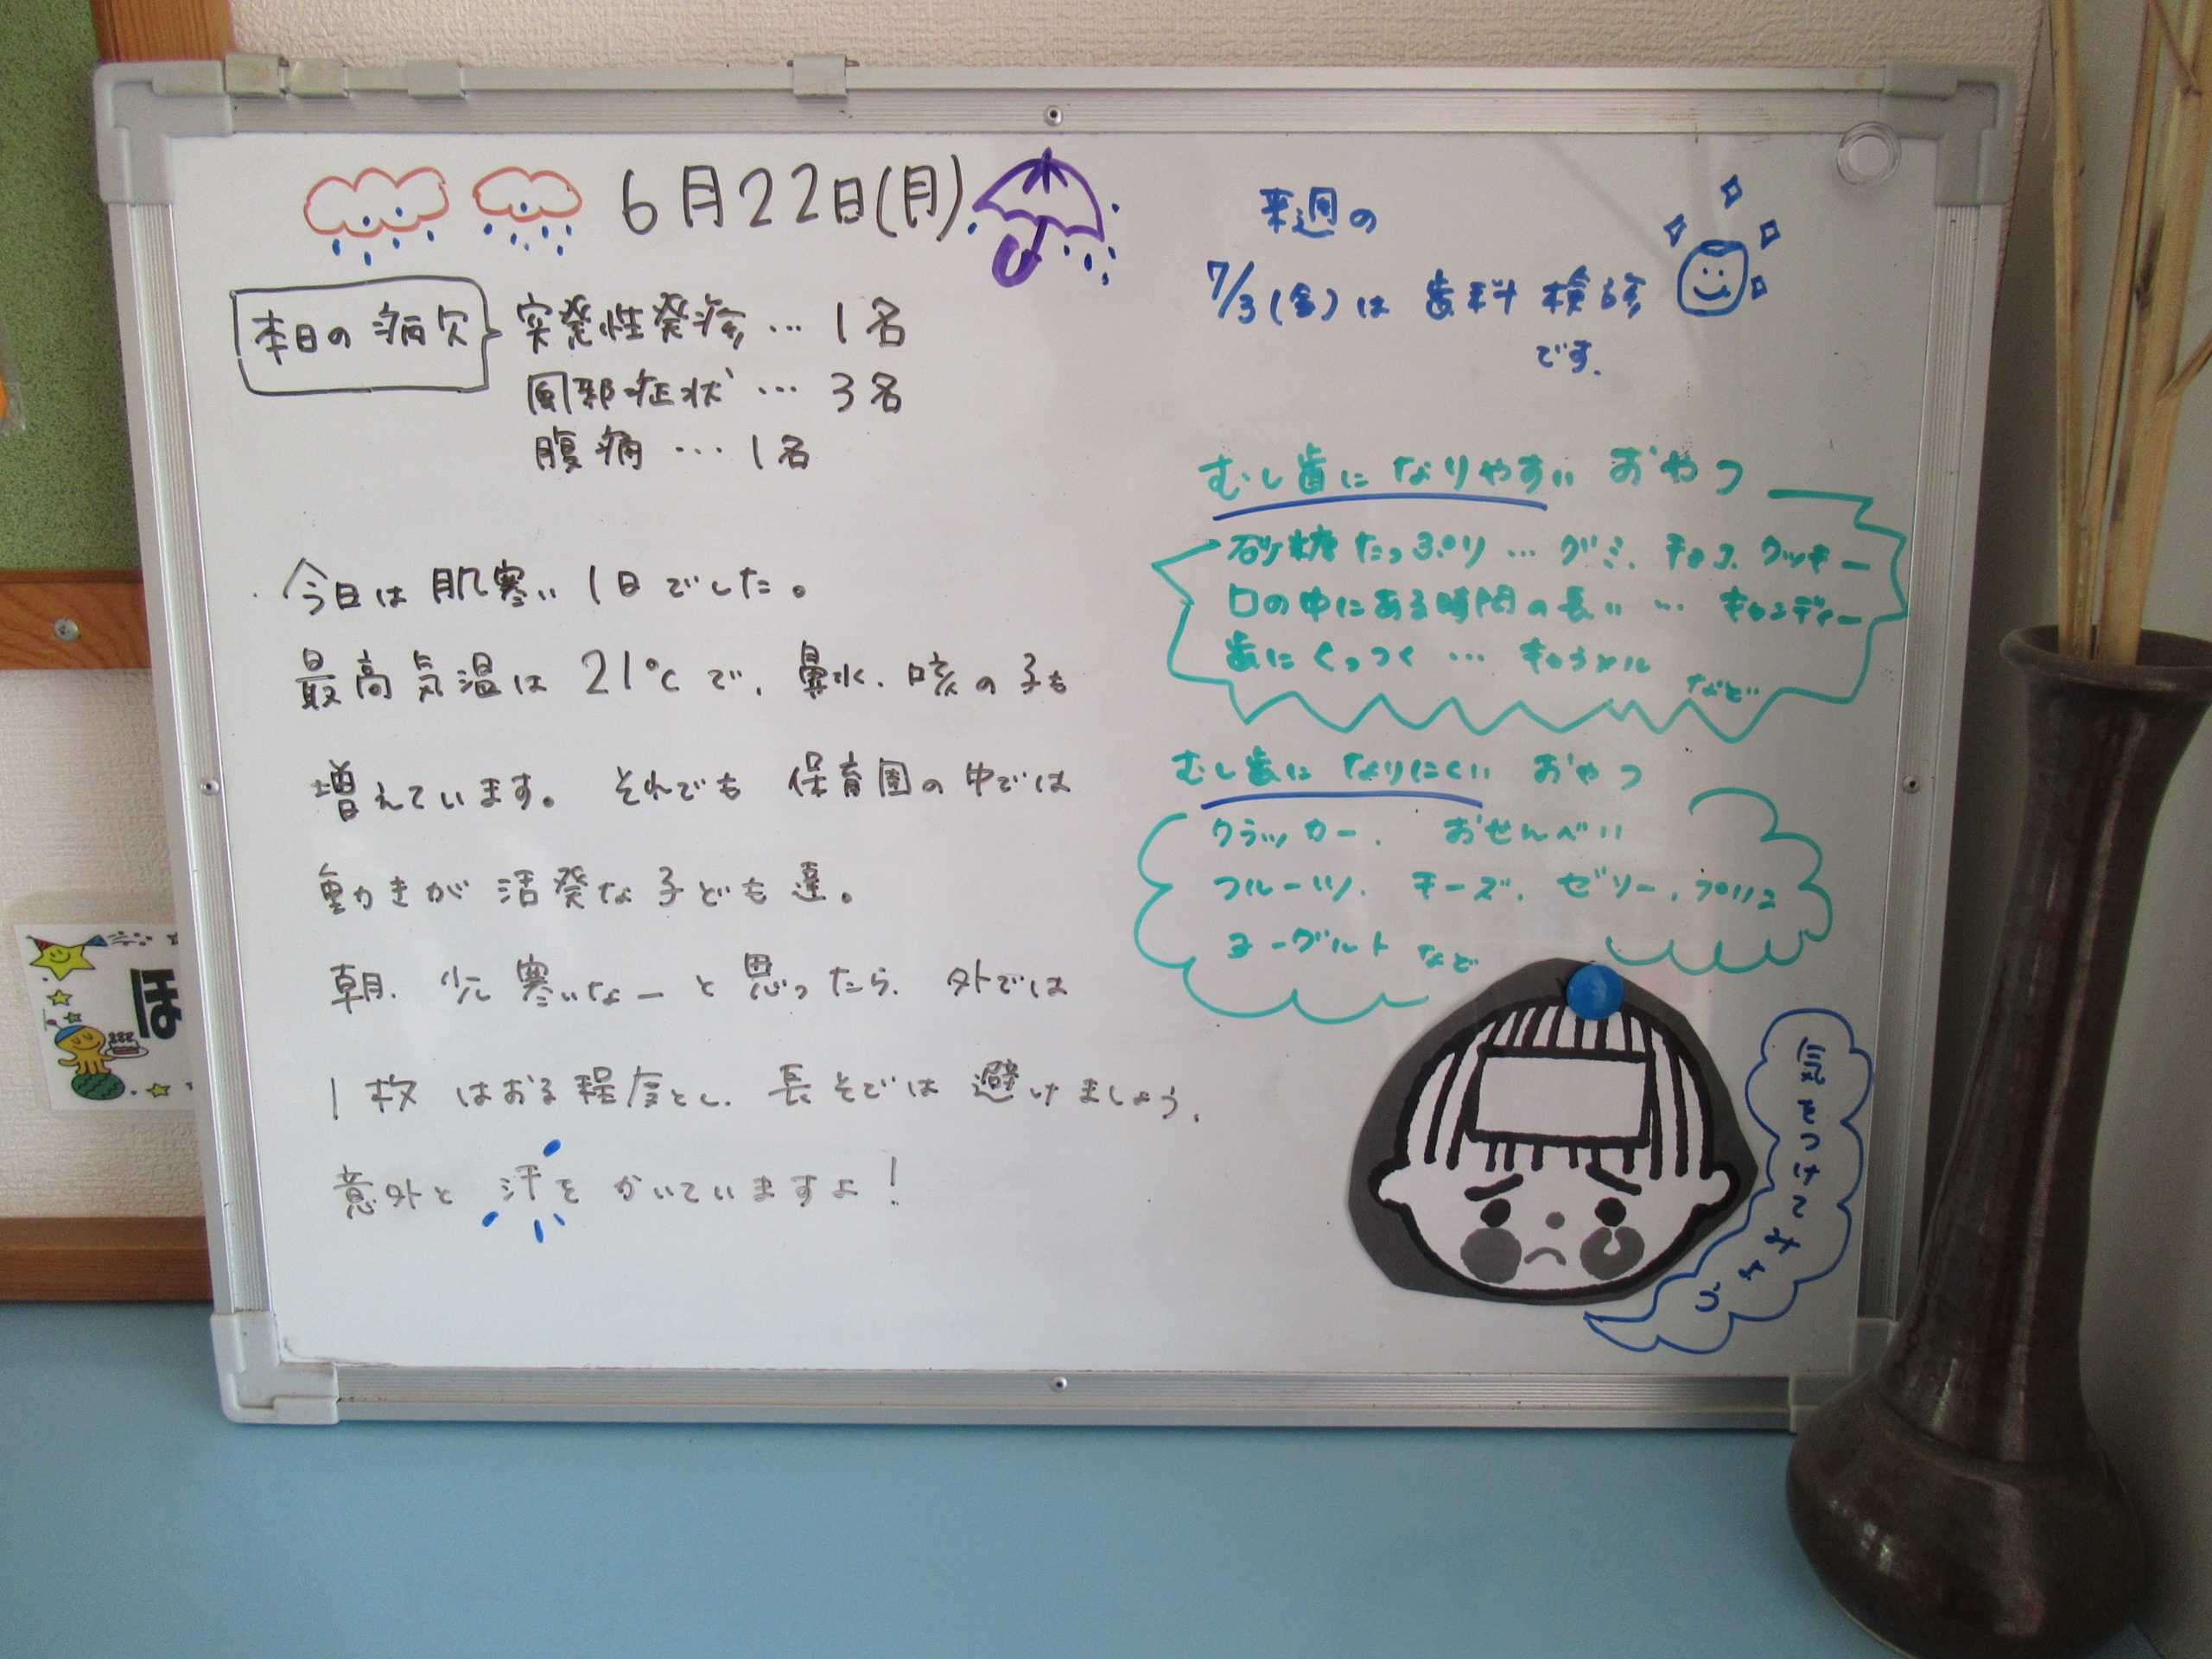 6月22日(月)
本日の病欠
突発性発疹… 1名
風邪症状… 3名
腹痛… 1名
今日は肌寒い1日でした。
最高気温は21℃で、鼻水、咳の子も
増えています。それでも保育園の中では
動きが活発な子ども達。
朝、少し寒いなーと思ったら、外では
1枚はおる程度とし、長そでは避けましょう。
意外と汗をかいていますよ!
来週の
7/3(金)は歯科検診
です。
むし歯になりやすいおやつ
砂糖たっぷり…グミ、チョコ、クッキー
口の中にある時間の長い…キャンディー
歯にくっつく…キャラメル
など
むし歯になりにくいおやつ
クラッカー、おせんべい
フルーツ、チーズ、ゼリー、プリン
ヨーグルトなど
気をつけてみよう
ほ